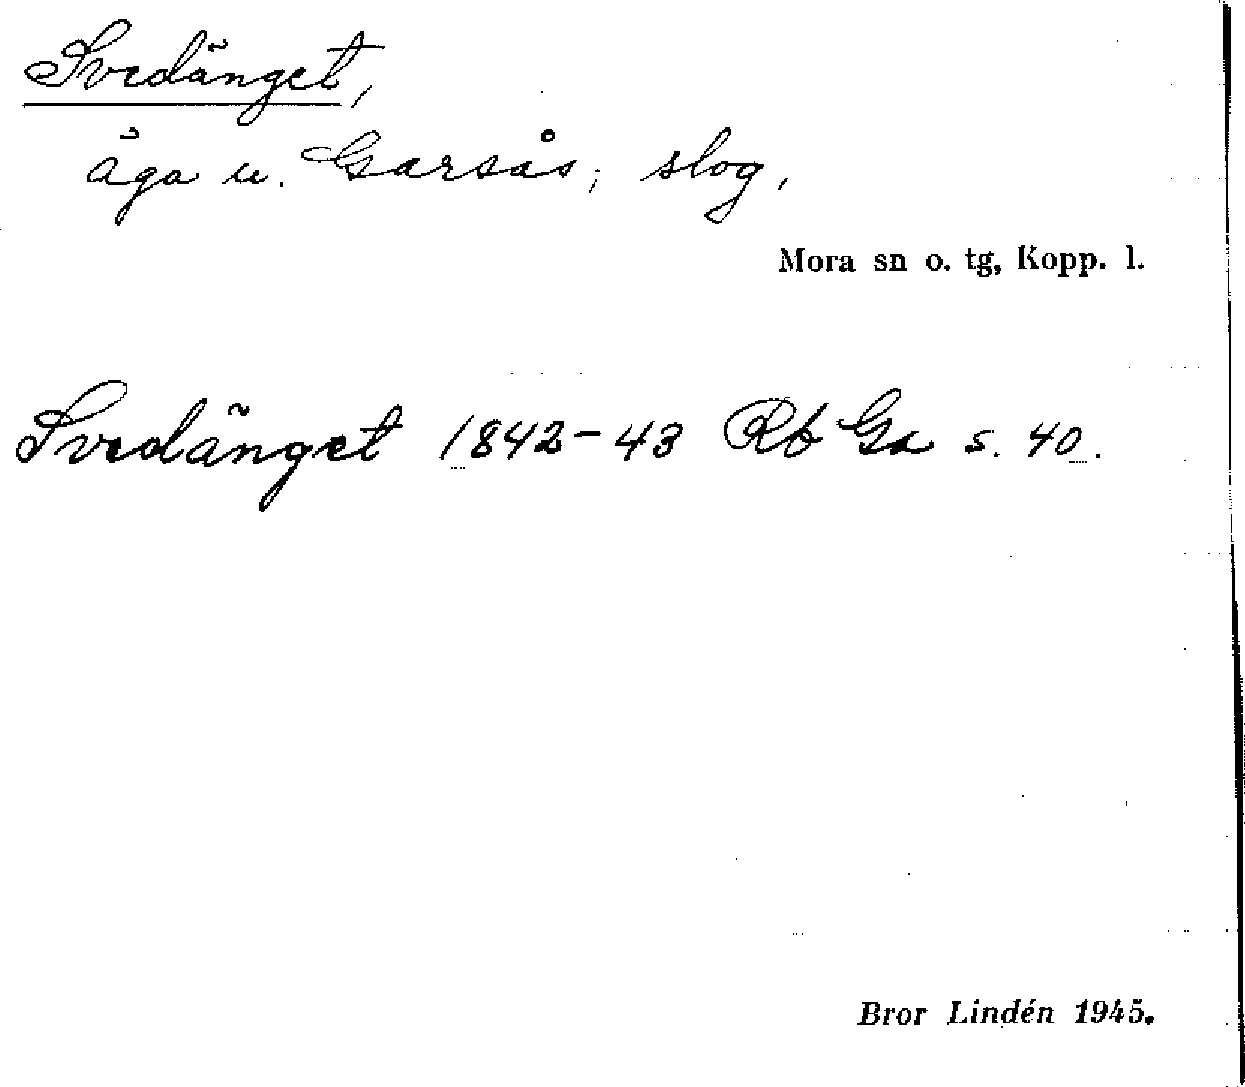 Svedänget,
äga u. Garsås; slog,
Mora sn o. tg, Kopp. l.
Svedänget 1842-43 Rb Ga s. 40.
Bror Lindén 1945.